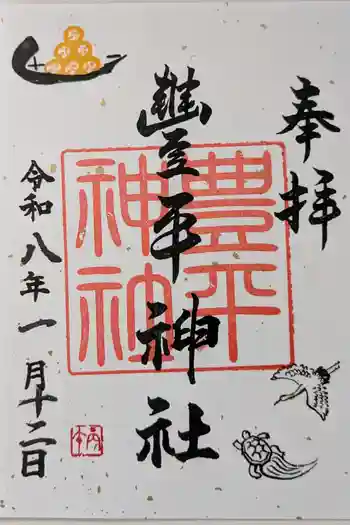 奉拝
豊平神社
豊平
神社
令和八年一月十二日